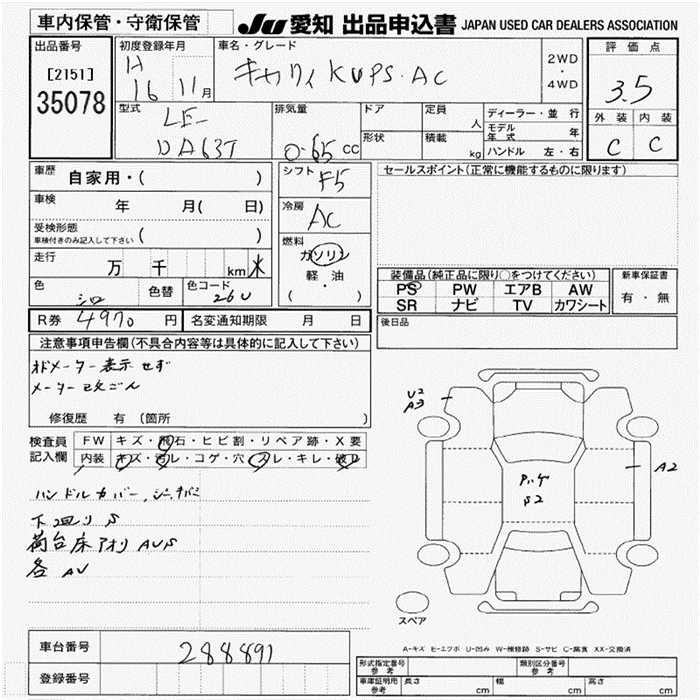 車内保管・守衛保管
JU 愛知 出品申込書 JAPAN USED CAR DEALERS ASSOCIATION
出品番号
[2151]
35078
初度登録年月
H
16 11月
車名・グレード
キャリィ KUPS・AC
2WD
・
4WD
評価点
3.5
外装 内装
C C
型式
LE-
DA63T
排気量
0.65 cc
ドア
形状
定員
人
積載
kg
ディーラー・並行
モデル年式 年
ハンドル 左・右
車歴
自家用・( )
車検
年 月( 日)
受検形態
車検付きのみ記入して下さい ( )
走行
万 千 km
色
シロ
色替
色コード
26U
シフト
F5
冷房
AC
燃料
ガソリン
軽・油
( )
セールスポイント(正常に機能するものに限ります)
装備品(純正品に限り○をつけてください)
PS PW エアB AW
SR ナビ TV カワシート
新車保証書
有・無
後日品
R券 4970 円
名変通知期限 月 日
注意事項申告欄(不具合内容等は具体的に記入して下さい)
オドメーター表示せず
メーター改ざん
修復歴 有(箇所 )
検査員
記入欄
FW キズ・飛石・ヒビ割・リペア跡・X要
内装 キズ・汚レ・コゲ・穴・スレ・キレ・破レ
ハンドルカバー、
下回り S
荷台床アオリ AUS
各 AU
U2
A3
A2
S2
スペア
A-キズ E-エクボ U-凹み W-補修跡 S-サビ C-腐食 XX-交換済
車台番号
288891
登録番号
形式指定番号
参考
類別区分番号
参考
車庫証明用
参考
長さ cm
幅 cm
高さ cm